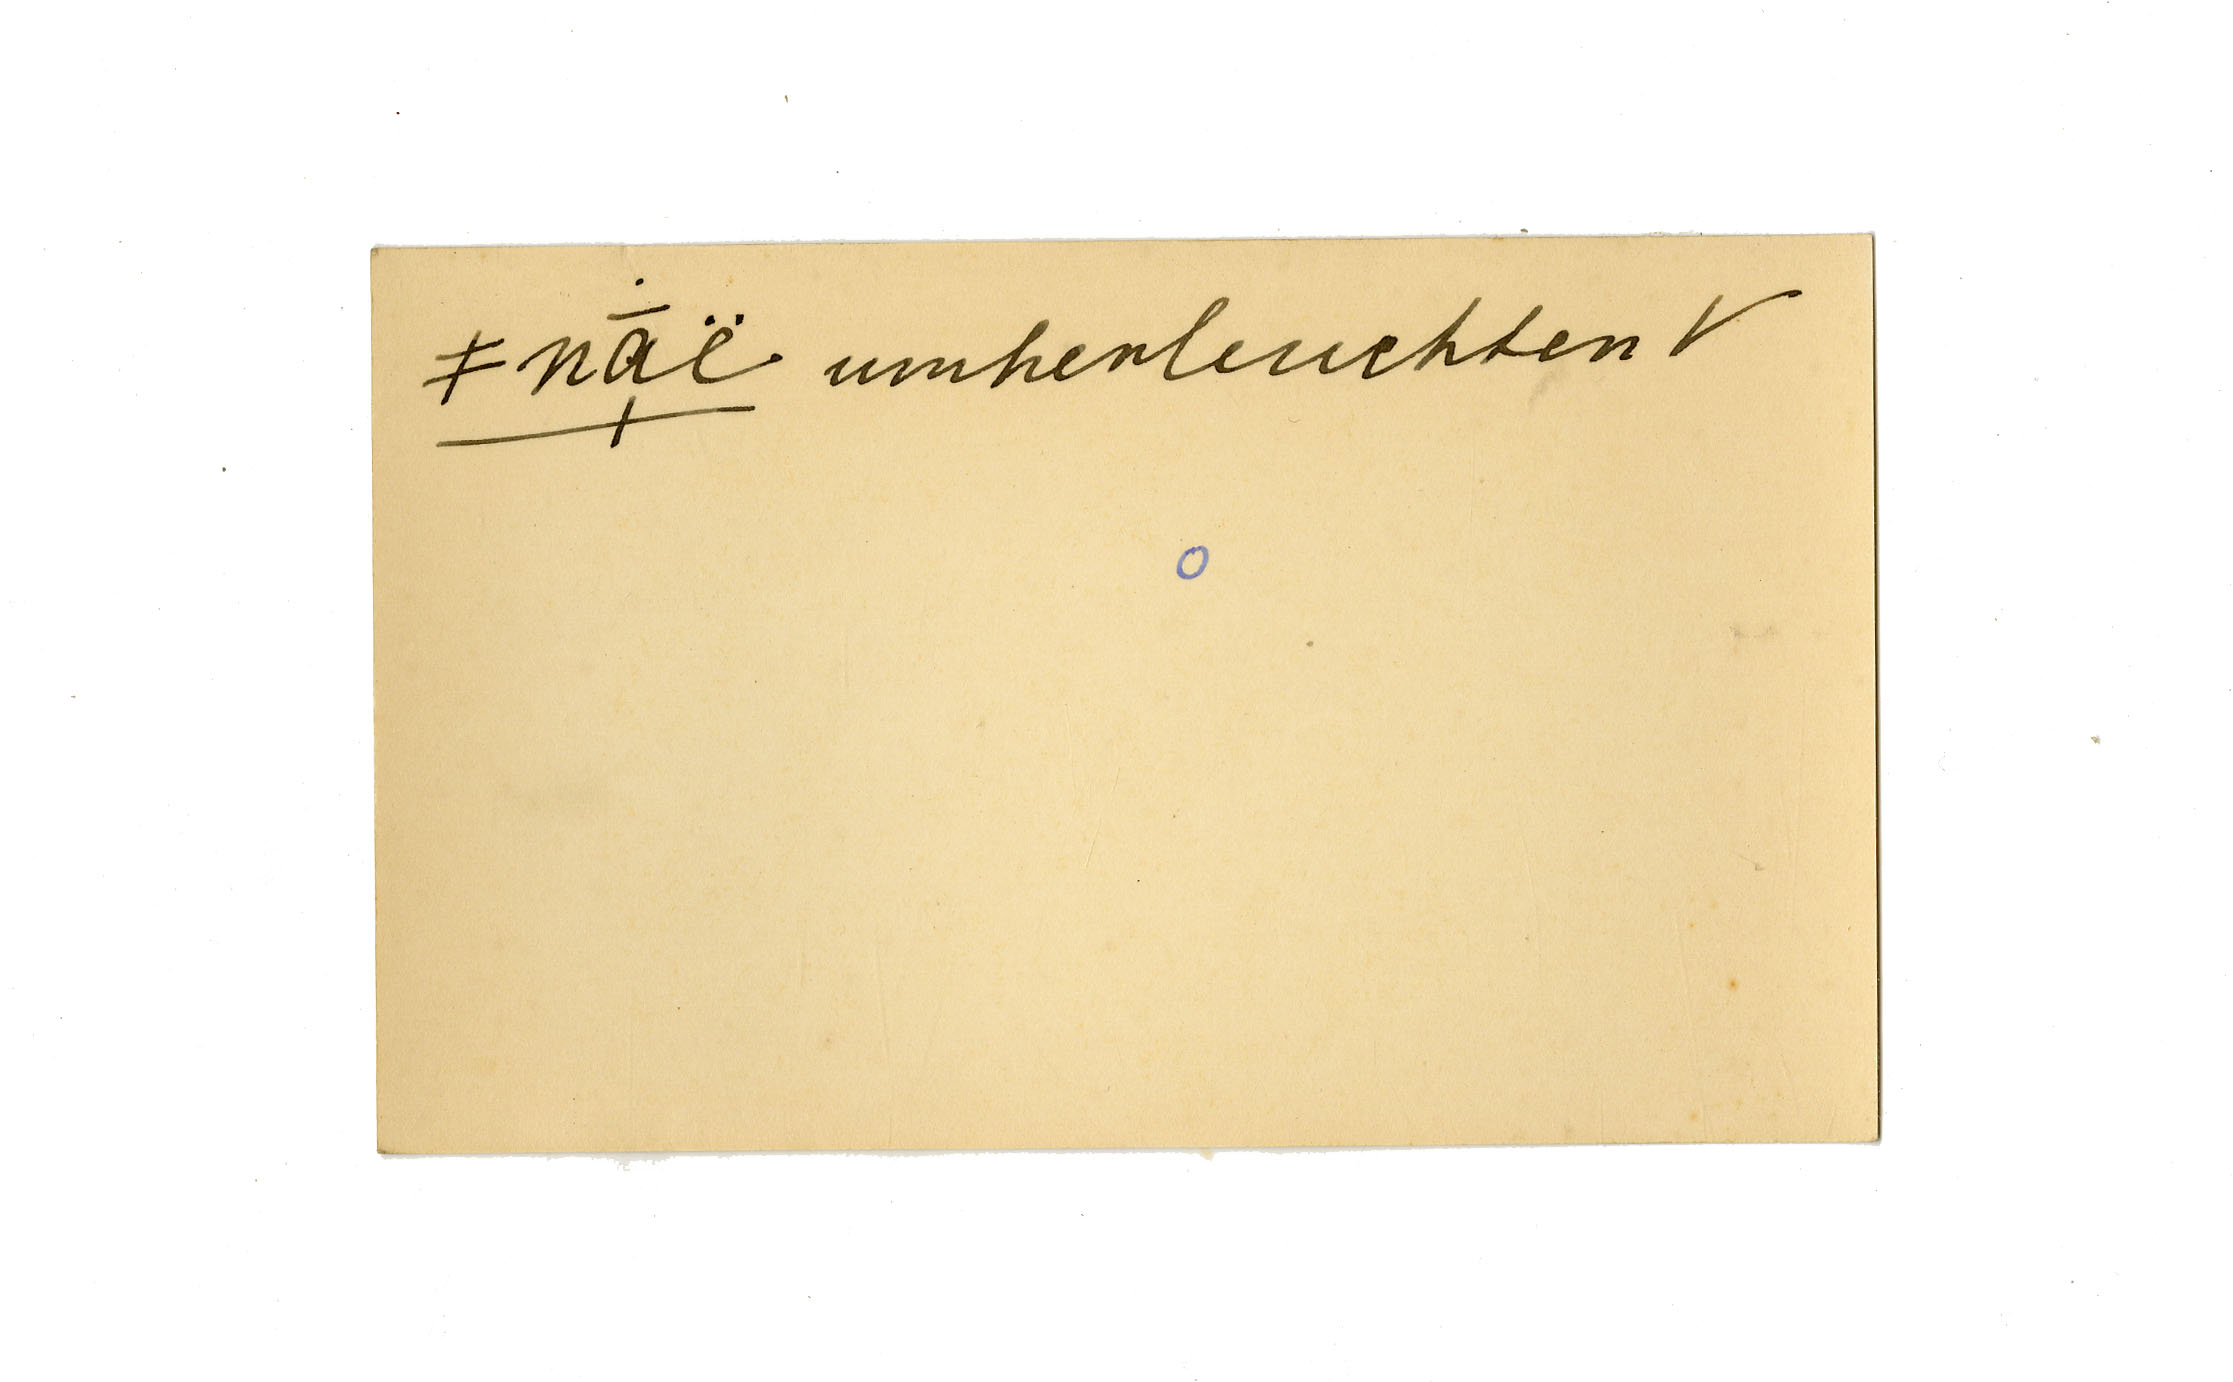 ǂnā̇ë umherleuchten V
o